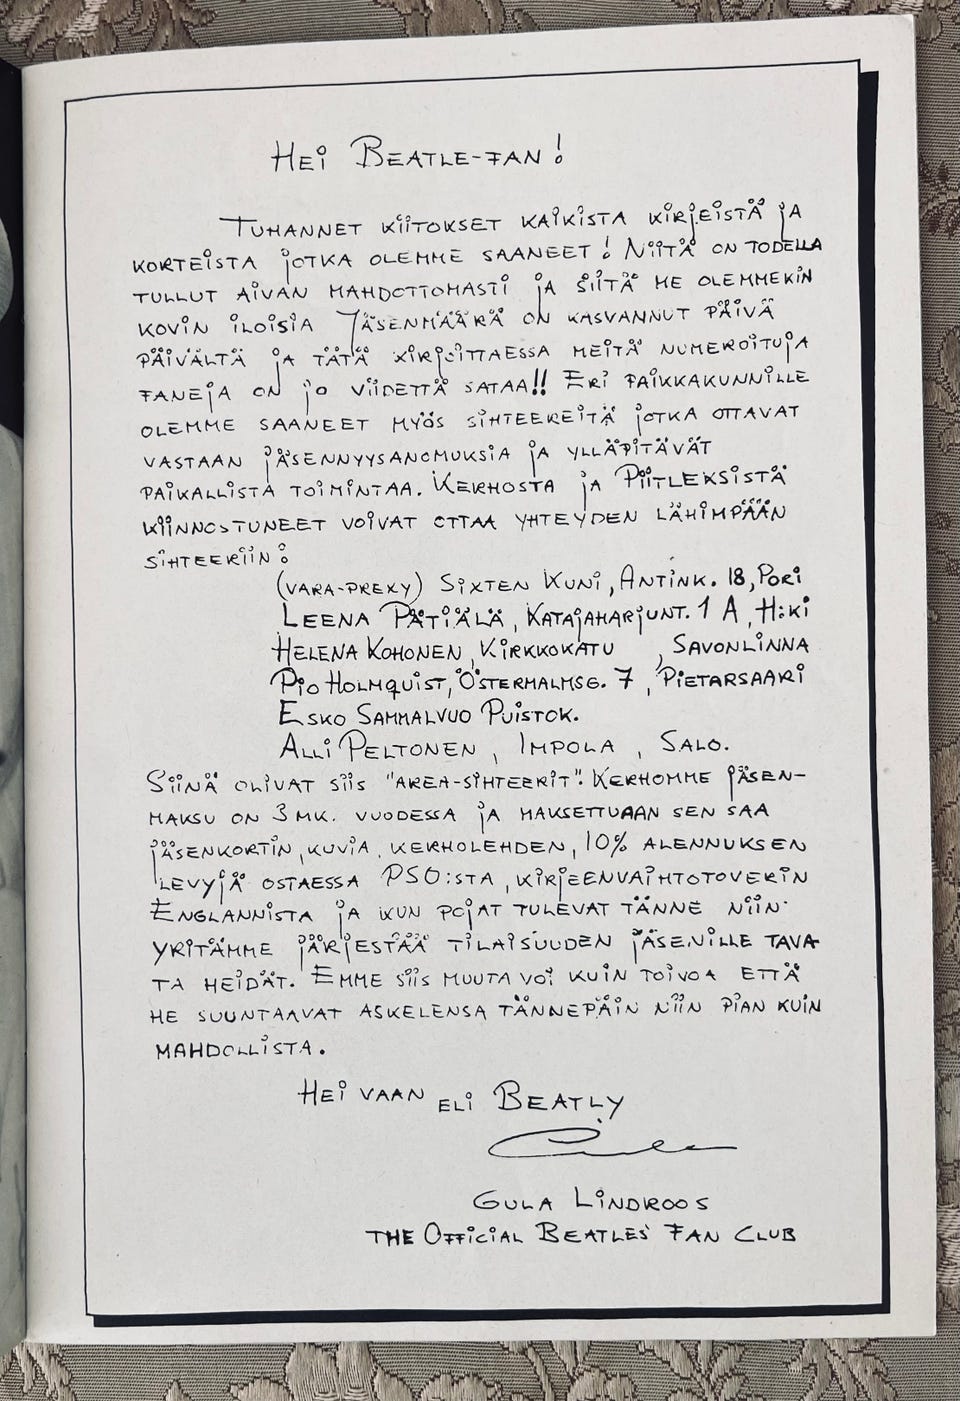 HEI BEATLE-FAN!
TUHANNET KIITOKSET KAIKISTA KIRJEISTÄ JA
KORTEISTA JOTKA OLEMME SAANEET! NIITÄ ON TODELLA
TULLUT AIVAN MAHDOTTOMASTI JA SIITÄ ME OLEMMEKIN
KOVIN ILOISIA JÄSENMÄÄRÄ ON KASVANNUT PÄIVÄ
PÄIVÄLTÄ JA TÄTÄ KIRJOITTAESSA MEITÄ NUMEROITUJA
FANEJA ON JO VIIDETTÄ SATAA!! ERI PAIKKAKUNNILLE
OLEMME SAANEET MYÖS SIHTEEREITÄ JOTKA OTTAVAT
VASTAAN JÄSENNYYSANOMUKSIA JA YLLÄPITÄVÄT
PAIKALLISTA TOIMINTAA. KERHOSTA JA PIITLEKSISTÄ
KIINNOSTUNEET VOIVAT OTTAA YHTEYDEN LÄHIMPÄÄN
SIHTEERIIN:
(VARA-PREXY) SIXTEN KUNI, ANTINK. 18, PORI
LEENA PÄTIÄLÄ, KATAJAHARJUNT. 1 A, H:KI
HELENA KOHONEN, KIRKKOKATU , SAVONLINNA
PIO HOLMQUIST, ÖSTERMALMSG. 7, PIETARSAARI
ESKO SAMMALVUO PUISTOK.
ALLI PELTONEN, IMPOLA, SALO.
SIINÄ OLIVAT SIIS "AREA-SIHTEERIT". KERHOMME JÄSEN-
MAKSU ON 3 MK. VUODESSA JA MAKSETTUAAN SEN SAA
JÄSENKORTIN, KUVIA, KERHOLEHDEN, 10% ALENNUKSEN
LEVYJÄ OSTAESSA PSO:STA, KIRJEENVAIHTOTOVERIN
ENGLANNISTA JA KUN POJAT TULEVAT TÄNNE NIIN
YRITÄMME JÄRJESTÄÄ TILAISUUDEN JÄSENILLE TAVA-
TA HEIDÄT. EMME SIIS MUUTA VOI KUIN TOIVOA ETTÄ
HE SUUNTAAVAT ASKELENSA TÄNNEPÄIN NIIN PIAN KUIN
MAHDOLLISTA.
HEI VAAN ELI BEATLY
GULA LINDROOS
THE OFFICIAL BEATLES' FAN CLUB